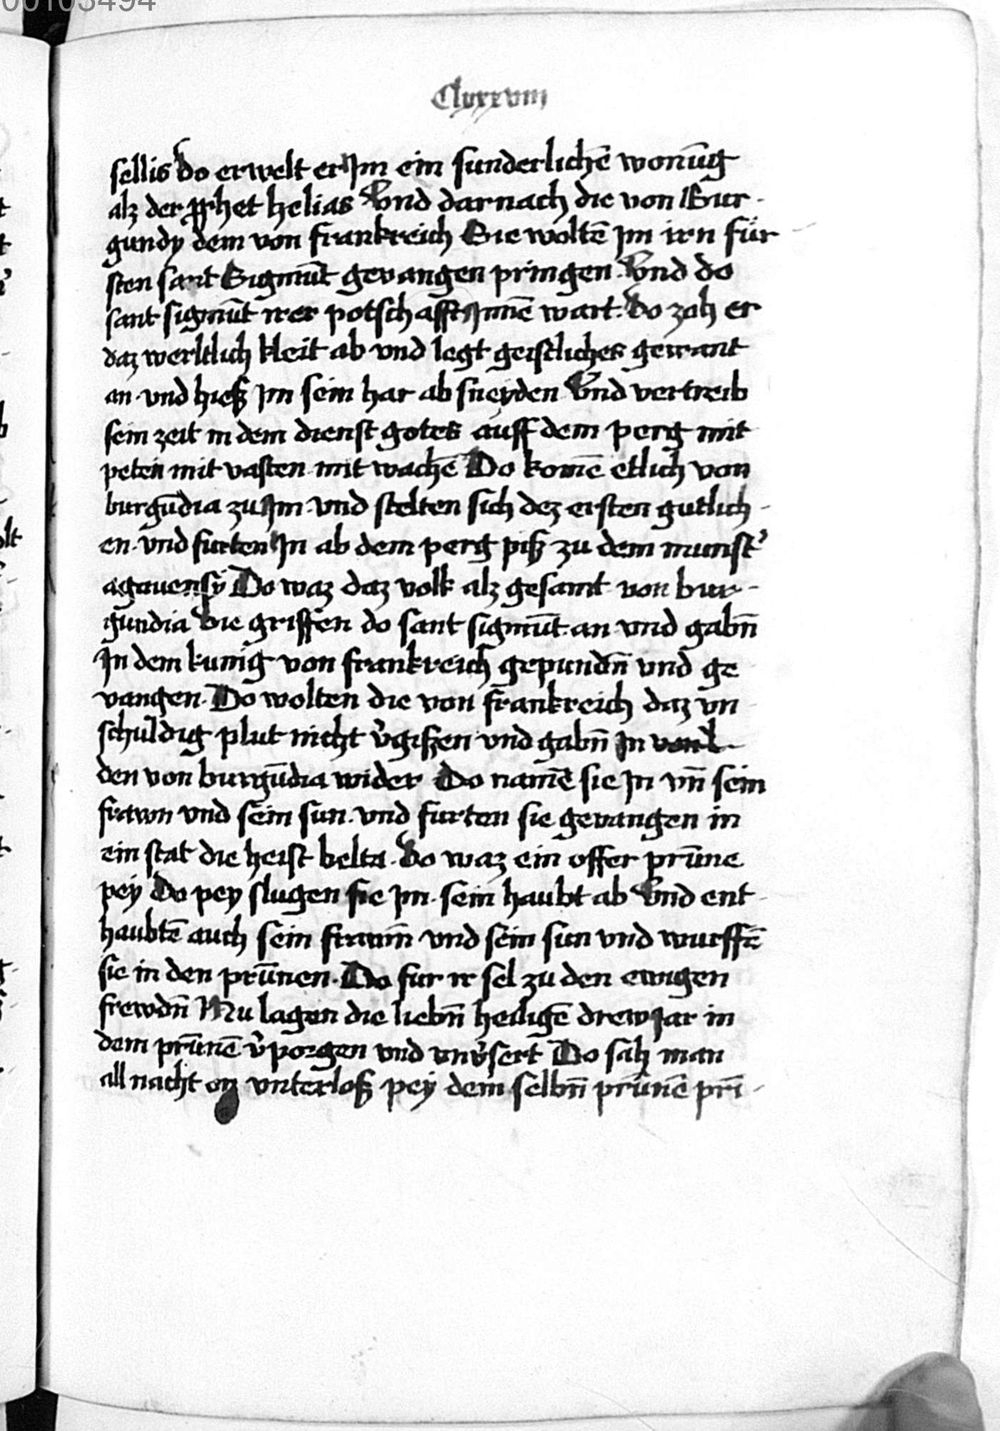 00103494
Clxxxviii
sellis Do erwelt er Im ein sunderlichē wonūg
alz der ꝓphet helias Vnd darnach die von Bur-
gundy dem von frankreich Sie woltē Im irn für
sten sant Sigmūt gevangen pringen. Vnd do
sant sigmūt irer potschafft Innē wart. Do zoh er
daz werltlich kleit ab vnd legt geistliches gewant
an. vnd hieß Im sein har ab sneyden Vnd vertreib
sein zeit in dem dienst gotes auff dem perg mit
peten mit vasten mit wachē Do komē etlich von
burgūdia zu Im. vnd stelten sich dez ersten gutlich-
en. vnd furten In ab dem perg piß zu dem munst'
agauensy Do waz daz volk alz gesamt von bur-
gundia Die griffen do sant sigmūt an vnd gabn̄
In dem kunig von frankreich gepundn̄ vnd ge
vangen. Do wolten die von frankreich daz vn
schuldig plut nicht v'gißen vnd gabn̄ In
den von burgūdia wider Do namē sie In vn̄ sein
frawn vnd sein sun. vnd furten sie gevangen in
ein stat die heist belta. Do waz ein offer prūne
pey Do pey slugen sie Im. sein haubt ab Vnd ent-
haubtē auch sein frawn̄ vnd sein sun vnd wurffē
sie in den prūnen. Do fur ir sel zu den ewigen
frewdn̄ Nu lagen die liebn̄ heiligē drew Jar in
dem prūnē v'porgen vnd vnv'sert Do sah man
all nacht on vnterloß pey dem selbn̄ prūnē prī-